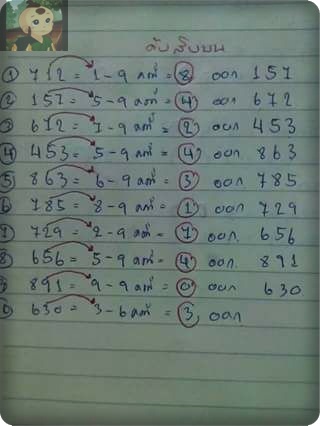 ดับสิบบน
① 712 = 1-9 ลบ = ⑧ ออก 157
② 157 = 5-9 ลบ = ④ ออก 672
③ 672 = 7-9 ลบ = ② ออก 453
④ 453 = 5-9 ลบ = ④ ออก 863
⑤ 863 = 6-9 ลบ = ③ ออก 785
⑥ 785 = 8-9 ลบ = ① ออก 729
⑦ 729 = 2-9 ลบ = ⑦ ออก 656
⑧ 656 = 5-9 ลบ = ④ ออก 891
⑨ 891 = 9-9 ลบ = ⓪ ออก 630
630 = 3-6 ลบ = ③ ออก